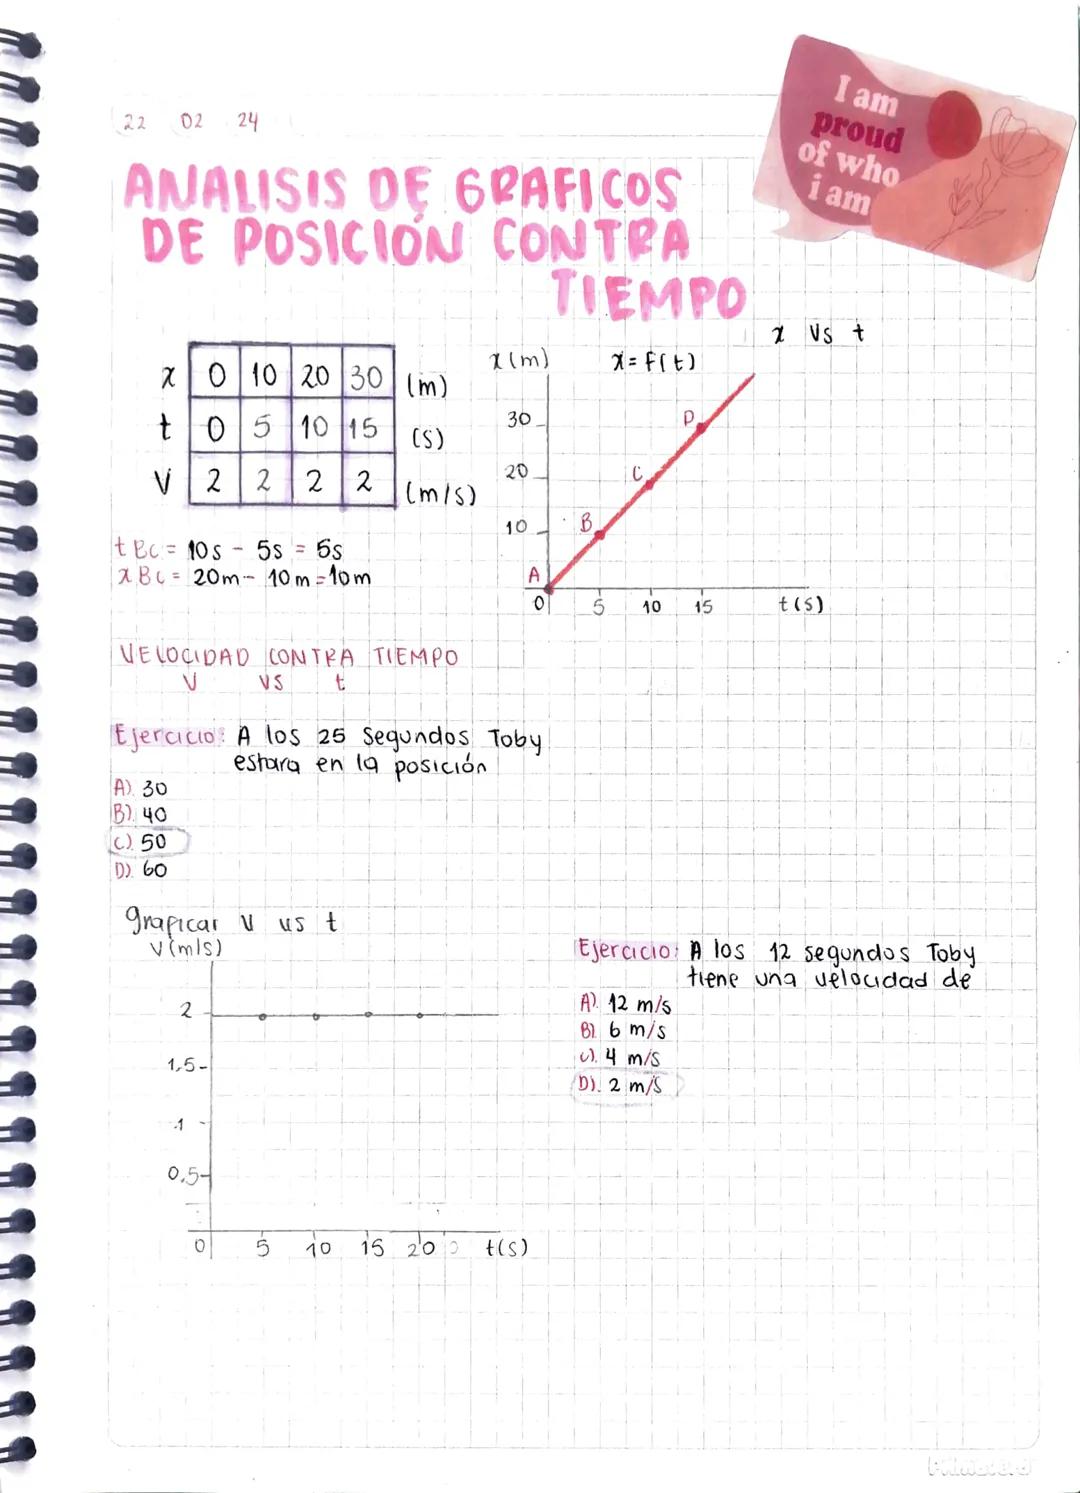 22 02 24
I am
proud
of who
i am
ANALISIS DE GRAFICOS
DE POSICIÓN CONTRA
TIEMPO
x 0 10 20 30 (m)
t 0 5 10 15 (s)
V 2 2 2 2 (m/s)
x Vs t
x(m) x=f(t)
30
20
10
A B C D
0 5 10 15 t(s)
tBC = 10s - 5s = 5s
xBC = 20m - 10m = 10m
VELOCIDAD CONTRA TIEMPO
V VS t
Ejercicio: A los 25 segundos Toby
estara en la posición
A). 30
B). 40
C). 50
D). 60
graficar V vs t
V(m/s)
2
1,5
1
0,5
0 5 10 15 20 t(s)
Ejercicio: A los 12 segundos Toby
tiene una velocidad de
A). 12 m/s
B). 6 m/s
C). 4 m/s
D). 2 m/s